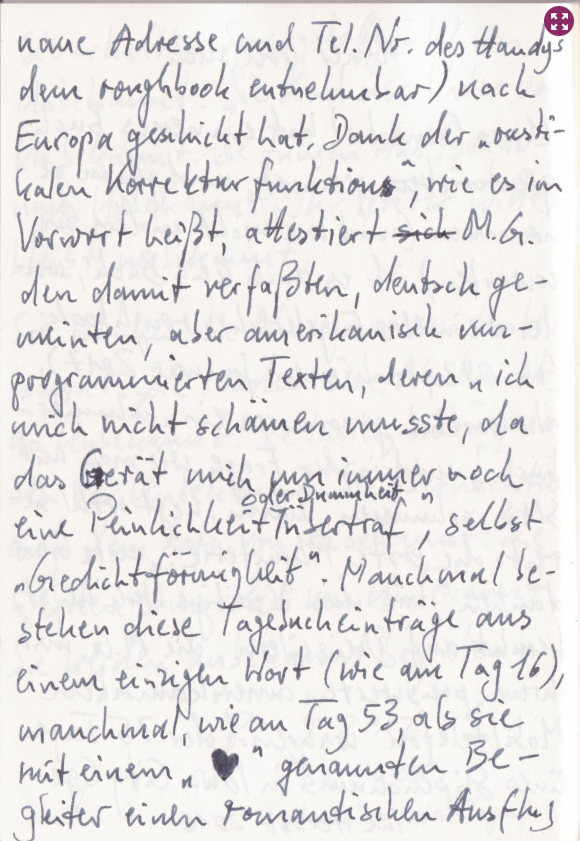 naue Adresse und Tel. Nr. des Handys
dem roughbook entnehmbar) nach
Europa geschickt hat. Dank der „rusti-
kalen Korrekturfunktion“, wie es im
Vorwort heißt, attestiert sich M.G.
den damit verfaßten, deutsch ge-
meinten, aber amerikanisch um-
programmierten Texten, deren „ich
mich nicht schämen musste, da
das Gerät mich um immer noch
eine Peinlichkeit oder Dummheit übertraf“, selbst
„Gedichtförmigkeit“. Manchmal be-
stehen diese Tagebucheinträge aus
einem einzigen Wort (wie am Tag 16),
manchmal wie an Tag 53, als sie
mit einem „♥“ genannten Be-
gleiter einen romantischen Ausflug